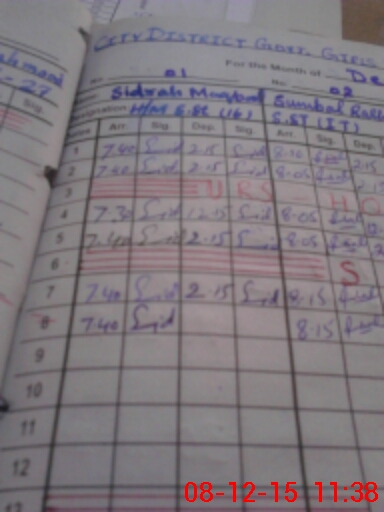 CITY DISTRICT GOVT. GIRLS
For the Month of De
No. 01 No. 02
- 27 Sidrah Maqbool Sumbal
Designation H/M S.St (16) S.ST (IT)
Sig. Arr. Sig. Dep. Sig. Arr. Sig. Dep.
1 7.40 Sid 2.15 Sid 8.10 2.15
2 7.40 Sid 2.15 Sid 8.05
3 U R S - H O
4 7.30 Sid 12.15 Sid 8.05
5 7.40 Sid 2.15 Sid 8.05
6 S
7 7.40 Sid 2.15 Sid 8.15
8 7.40 Sid 8.15
9
10
11
12
13
08-12-15 11:38